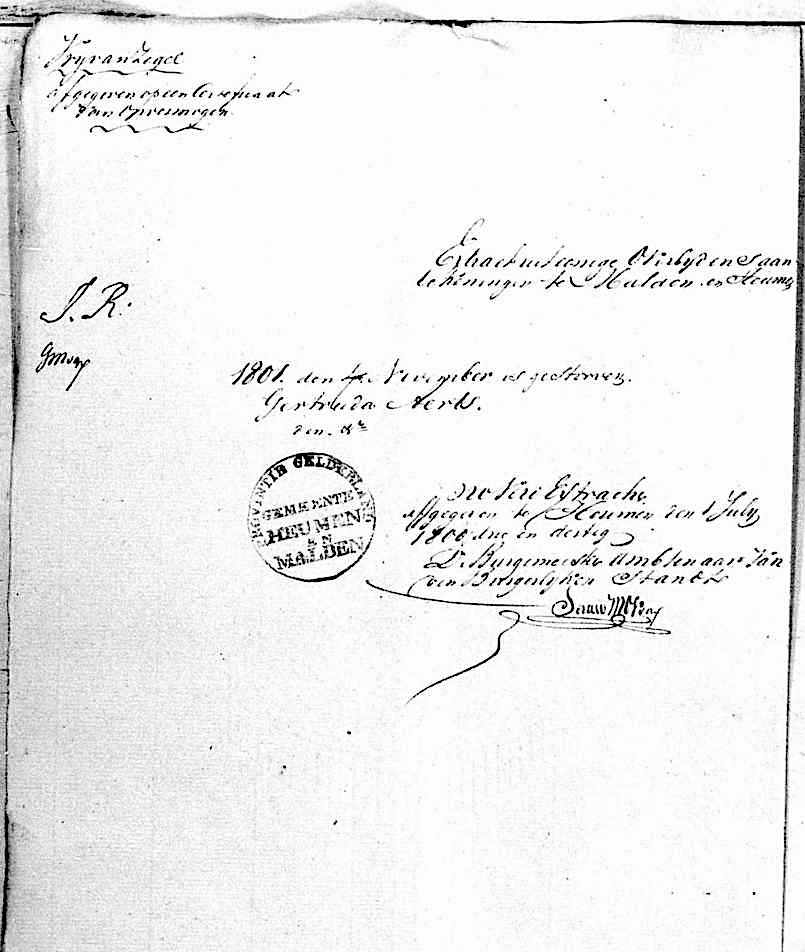 Vryvan Zegel
afgegeven op een Certificaat
van Onvermogen
Extract uit eenige Overlyden saan
tekeningen te Malden en Heumen
J. R.
1801. den 4e November is gestorven.
Gertruda Aerts.
PROVINTIE GELDERLAND
GEMEENTE
HEUMEN
EN
MALDEN
Pro Vero Extractu
afgegeven te Heumen den 1 July
1800 drie en dertig
De Burgemeester Ambtenaar van
den Burgerlyken Stand